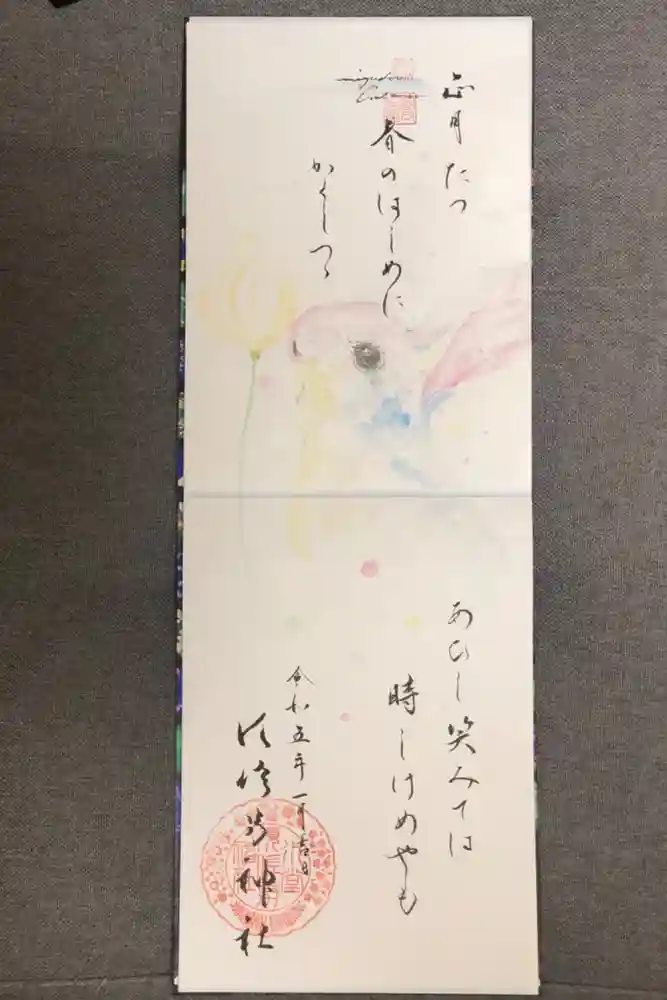 正月たつ
春のはしめに
かくしつゝ
あひし笑みては
時しけめやも
令和五年一月吉日
神社